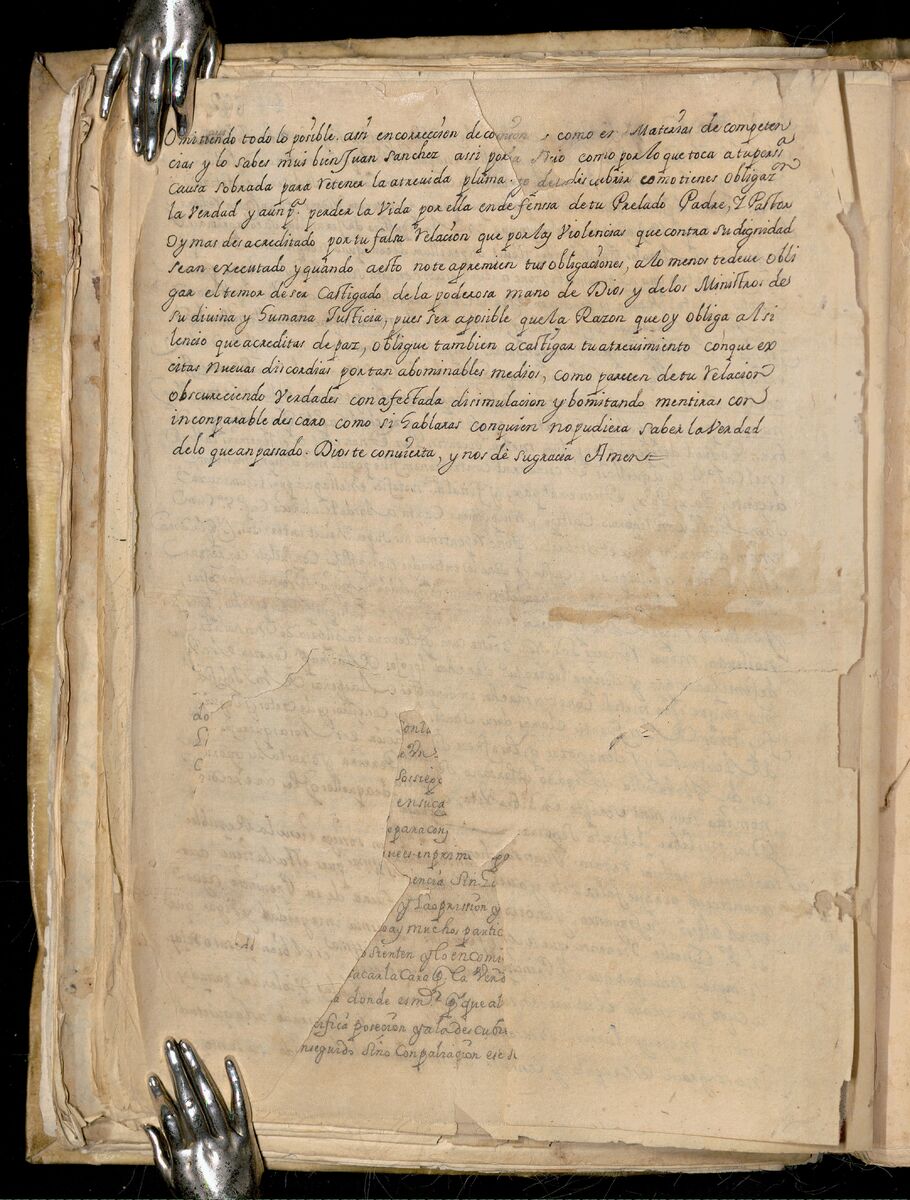 Omitiendo todo lo posible. assi en correccion de como es Materias de competen
cias y lo sabes mui bien Juan Sanchez assi por a sitio como por lo que toca a tu perssa
Causa sobrada para retener la atrevida pluma. descubrir como tienes obligazn
la Verdad y aun p. perder la Vida por ella en defenssa de tu Prelado Padre, Y Pastor
Oy mas desacreditado por tu falsa relacion que por las Violencias que contra su dignidad
sean executado y quando aesto note apremien tus obligaciones, a lo menos te deve obli
gar el temor de ser Castigado de la poderosa mano de Dios y de los Ministros de
su divina y humana Justicia, pues ser a posible que la Razon que oy obliga al si
lencio que acreditas de paz, obligue tambien a castigar tu atrevimiento conque ex
citas nuevas discordias por tan abominables medios, como parecen de tu relacion
obscureciendo verdades con afectada disimulacion y bomitando mentiras con
inconparable descaro como si hablaras con quien no pudiera saber la Verdad
de lo que an passado. Dios te convierta, y nos dè su gracia Amen
do
Sossieg
en su ca
para con
ees in prim
encia Sin
y La oprission y
ay muchos partic
sienten y lo encomi
acar la Cara
a donde es que al
ifica posecion y a la descubi
nseguido sino con paliacion ese s